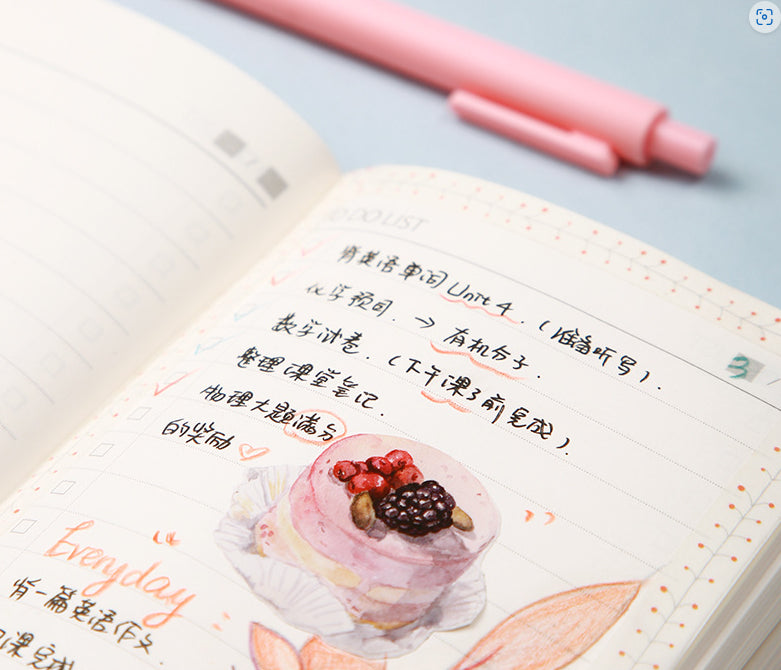 TO DO LIST
背英语单词 Unit 4. (准备听写).
化学预习. → 有机分子.
数学试卷. (下午课3前完成).
整理课堂笔记.
物理大题满分
的奖励
3 /
Everyday
背一篇英语作文.
课完成